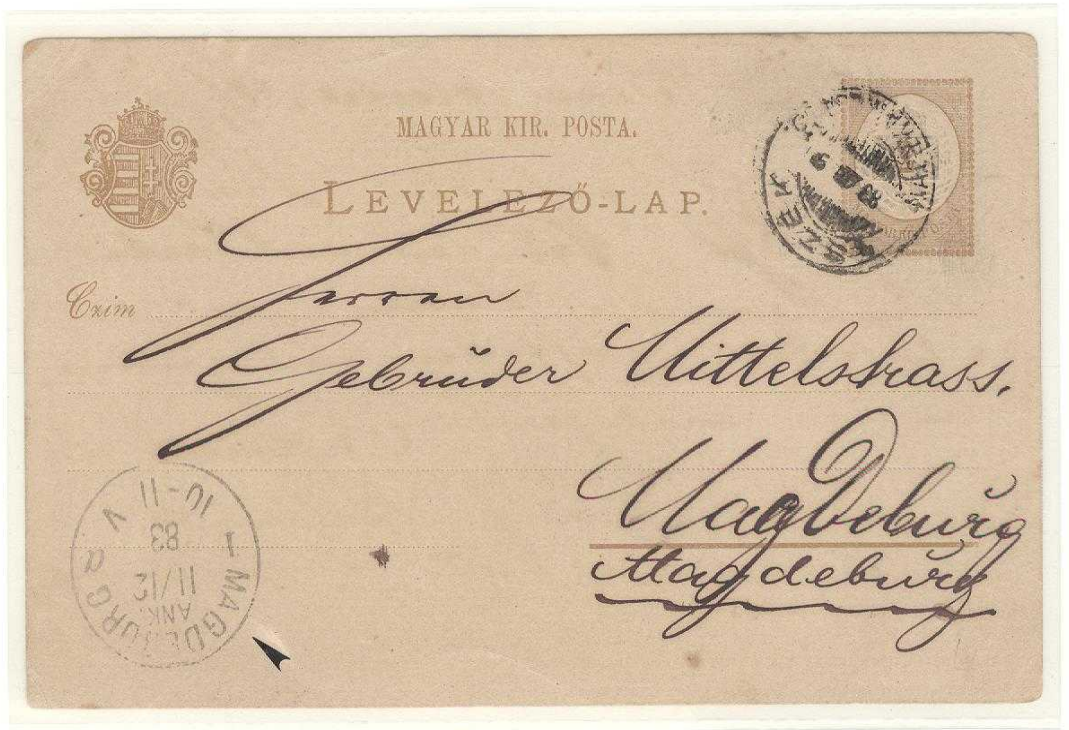 MAGYAR KIR. POSTA.
LEVELEZŐ-LAP.
Czim
Herren
Gebrüder Mittelstrass.
Magdeburg
Magdeburg
MAGDEBURG
ANK.
11/12
83
10-11 V
1